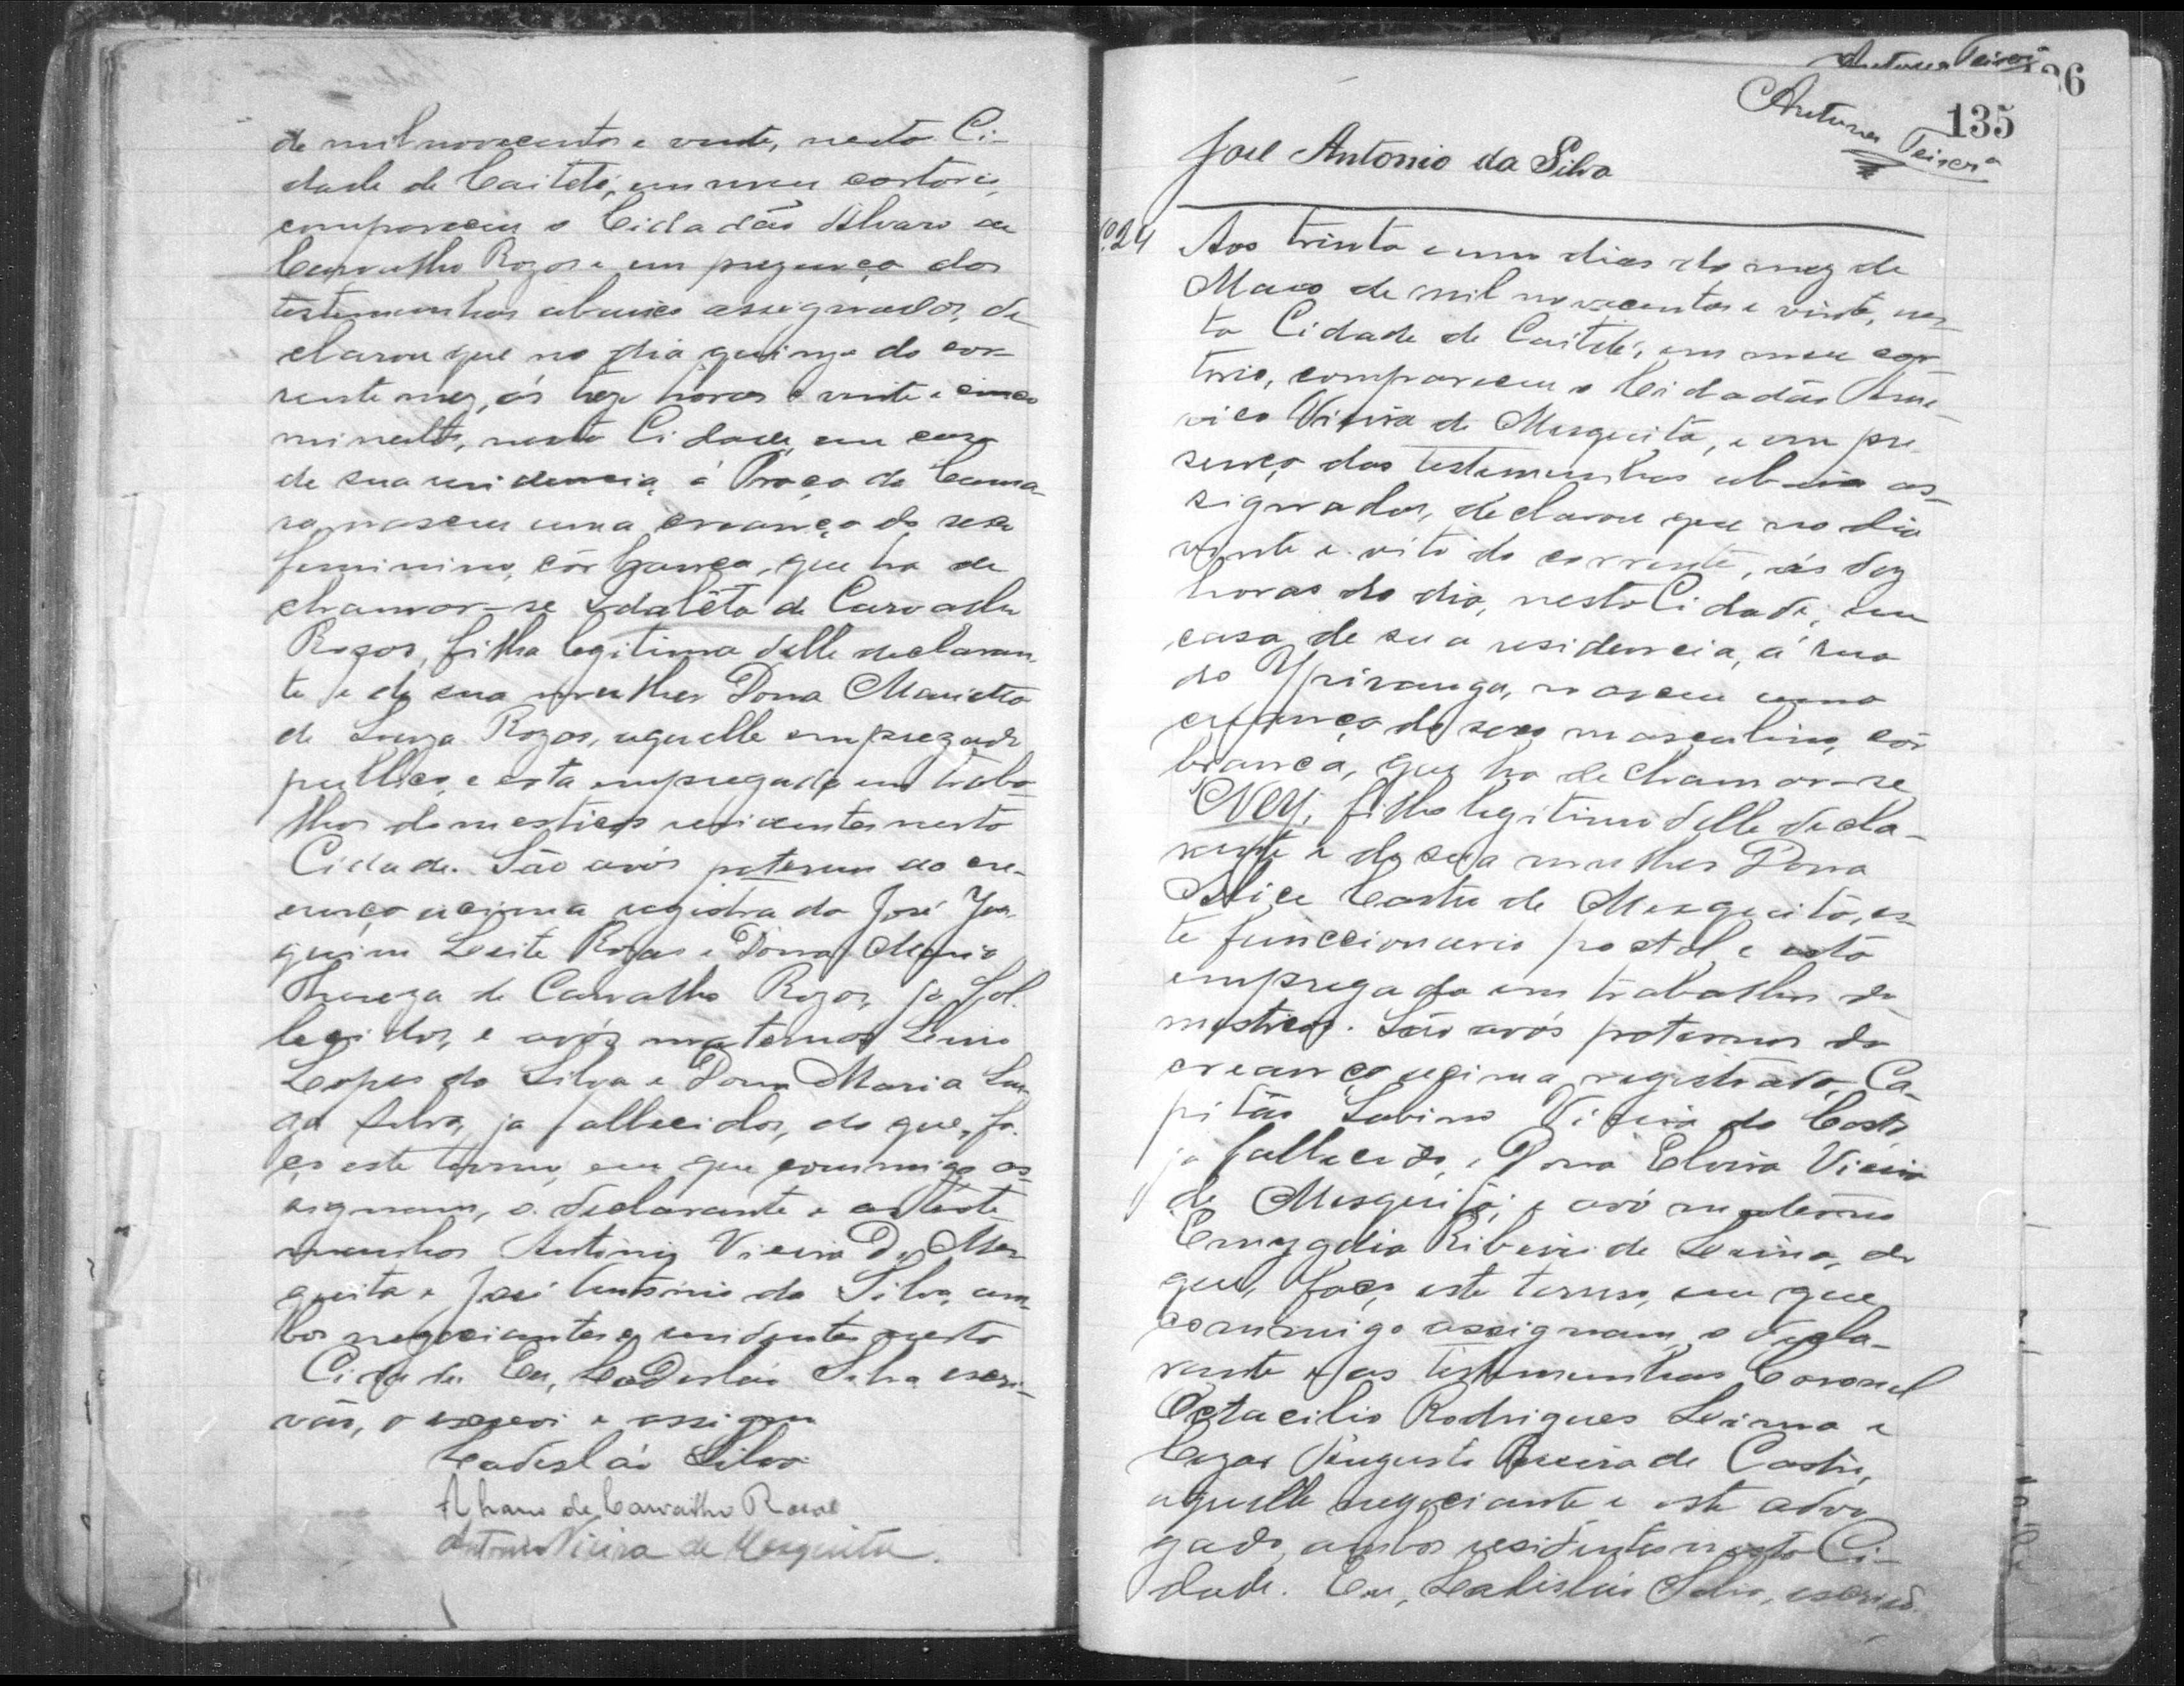 de mil novecentos e vinte, nesta Ci-
dade de Caiteté, em meu cartorio,
compareceu o Cidadão Alvaro de
Carvalho Rozas e em prezença das
testemunhas abaixo assignados, de-
clarou que no dia quinze do cor-
rente mez, ás treze horas e vinte e cinco
minutos, nesta Cidade, em caza
de sua residencia, á Praça da Cama-
ra, nasceu uma creança do sexo
feminino, côr branca, que ha de
chamar-se de Carvalho
Rozas, filha legitima delle declaran-
te e de sua mulher Dona Marieta
de Souza Rozas, aquelle empregado
publico, e esta empregada em traba-
lhos domesticos residentes nesta
Cidade. São avós paternos da cre-
ança acima registrada José Joa-
quim Leite Rozas e Dona Maria
Thereza de Carvalho Rozas, já fal-
lecidos, e avós maternos
Lopes da Silva e Dona Maria
da Silva, já fallecidos, do que, fa-
ço este termo, em que commigo as-
signam, o declarante e as teste-
munhas Antonio Vieira De Mes-
quita e José Antonio da Silva, am-
bos negociantes e residentes nesta
Cidade. Eu, Ladisláo Silva escri-
vão, o escrevi e assigno
Ladisláo Silva
Alvaro de Carvalho Rozas
Antonio Vieira de Mesquita.
Antunes Teixera
136
Antunes Teixera
135
José Antonio da Silva
24 Aos trinta e um dias do mez de
Maio de mil novecentos e vinte, nes-
ta Cidade de Caiteté, em meu car-
torio, compareceu o Cidadão Ame-
rico Vieira de Mesquita, e em pre-
sença das testemunhas abaixo as-
signados, declarou que no dia
vinte e oito do corrente, ás dez
horas do dia, nesta Cidade, em
casa de sua residencia, á rua
do Ypiranga, nasceu uma
creança do sexo masculino, côr
branca, que ha de chamar-se
Ney, filho legitimo delle decla-
rante e de sua mulher Dona
Alice Castro de Mesquita, es-
te funccionario postal e esta
empregada em trabalhos do-
mesticos. São avós paternos da
creança acima registrada, Ca-
pitão Sabino Vieira da Costa,
já fallecido, e Dona Elvira Vieira
de Mesquita; e avó materna
Emygdia Ribeiro de Lima, do
que, faço este termo, em que
commigo assignam o decla-
rante e as testemunhas Coronel
Octacilio Rodrigues Lima e
Cezar Augusto de Castro,
aquelle negociante e este advo-
gado, ambos residentes nesta Ci-
dade. Eu, Ladisláo Silva, escrivão